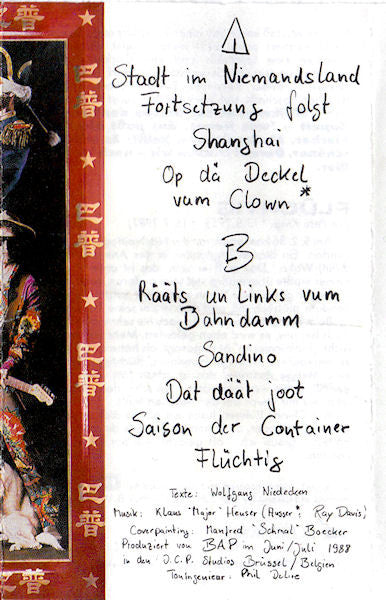 ★ 巴普
巴普
★
巴普
★
巴普
★
巴普
巴普 ★
A
Stadt im Niemandsland
Fortsetzung folgt
Shanghai
Op dä Deckel
vum Clown *
B
Rääts un Links vum
Bahndamm
Sandino
Dat däät joot
Saison der Container
Flüchtig
Texte: Wolfgang Niedecken
Musik: Klaus "Major" Heuser (Ausser *: Ray Davis)
Coverpainting: Manfred "Schmal" Boecker
Produziert von BAP im Juni/Juli 1988
in den I.C.P. Studios Brüssel/Belgien
Toningenieur: Phil Delire